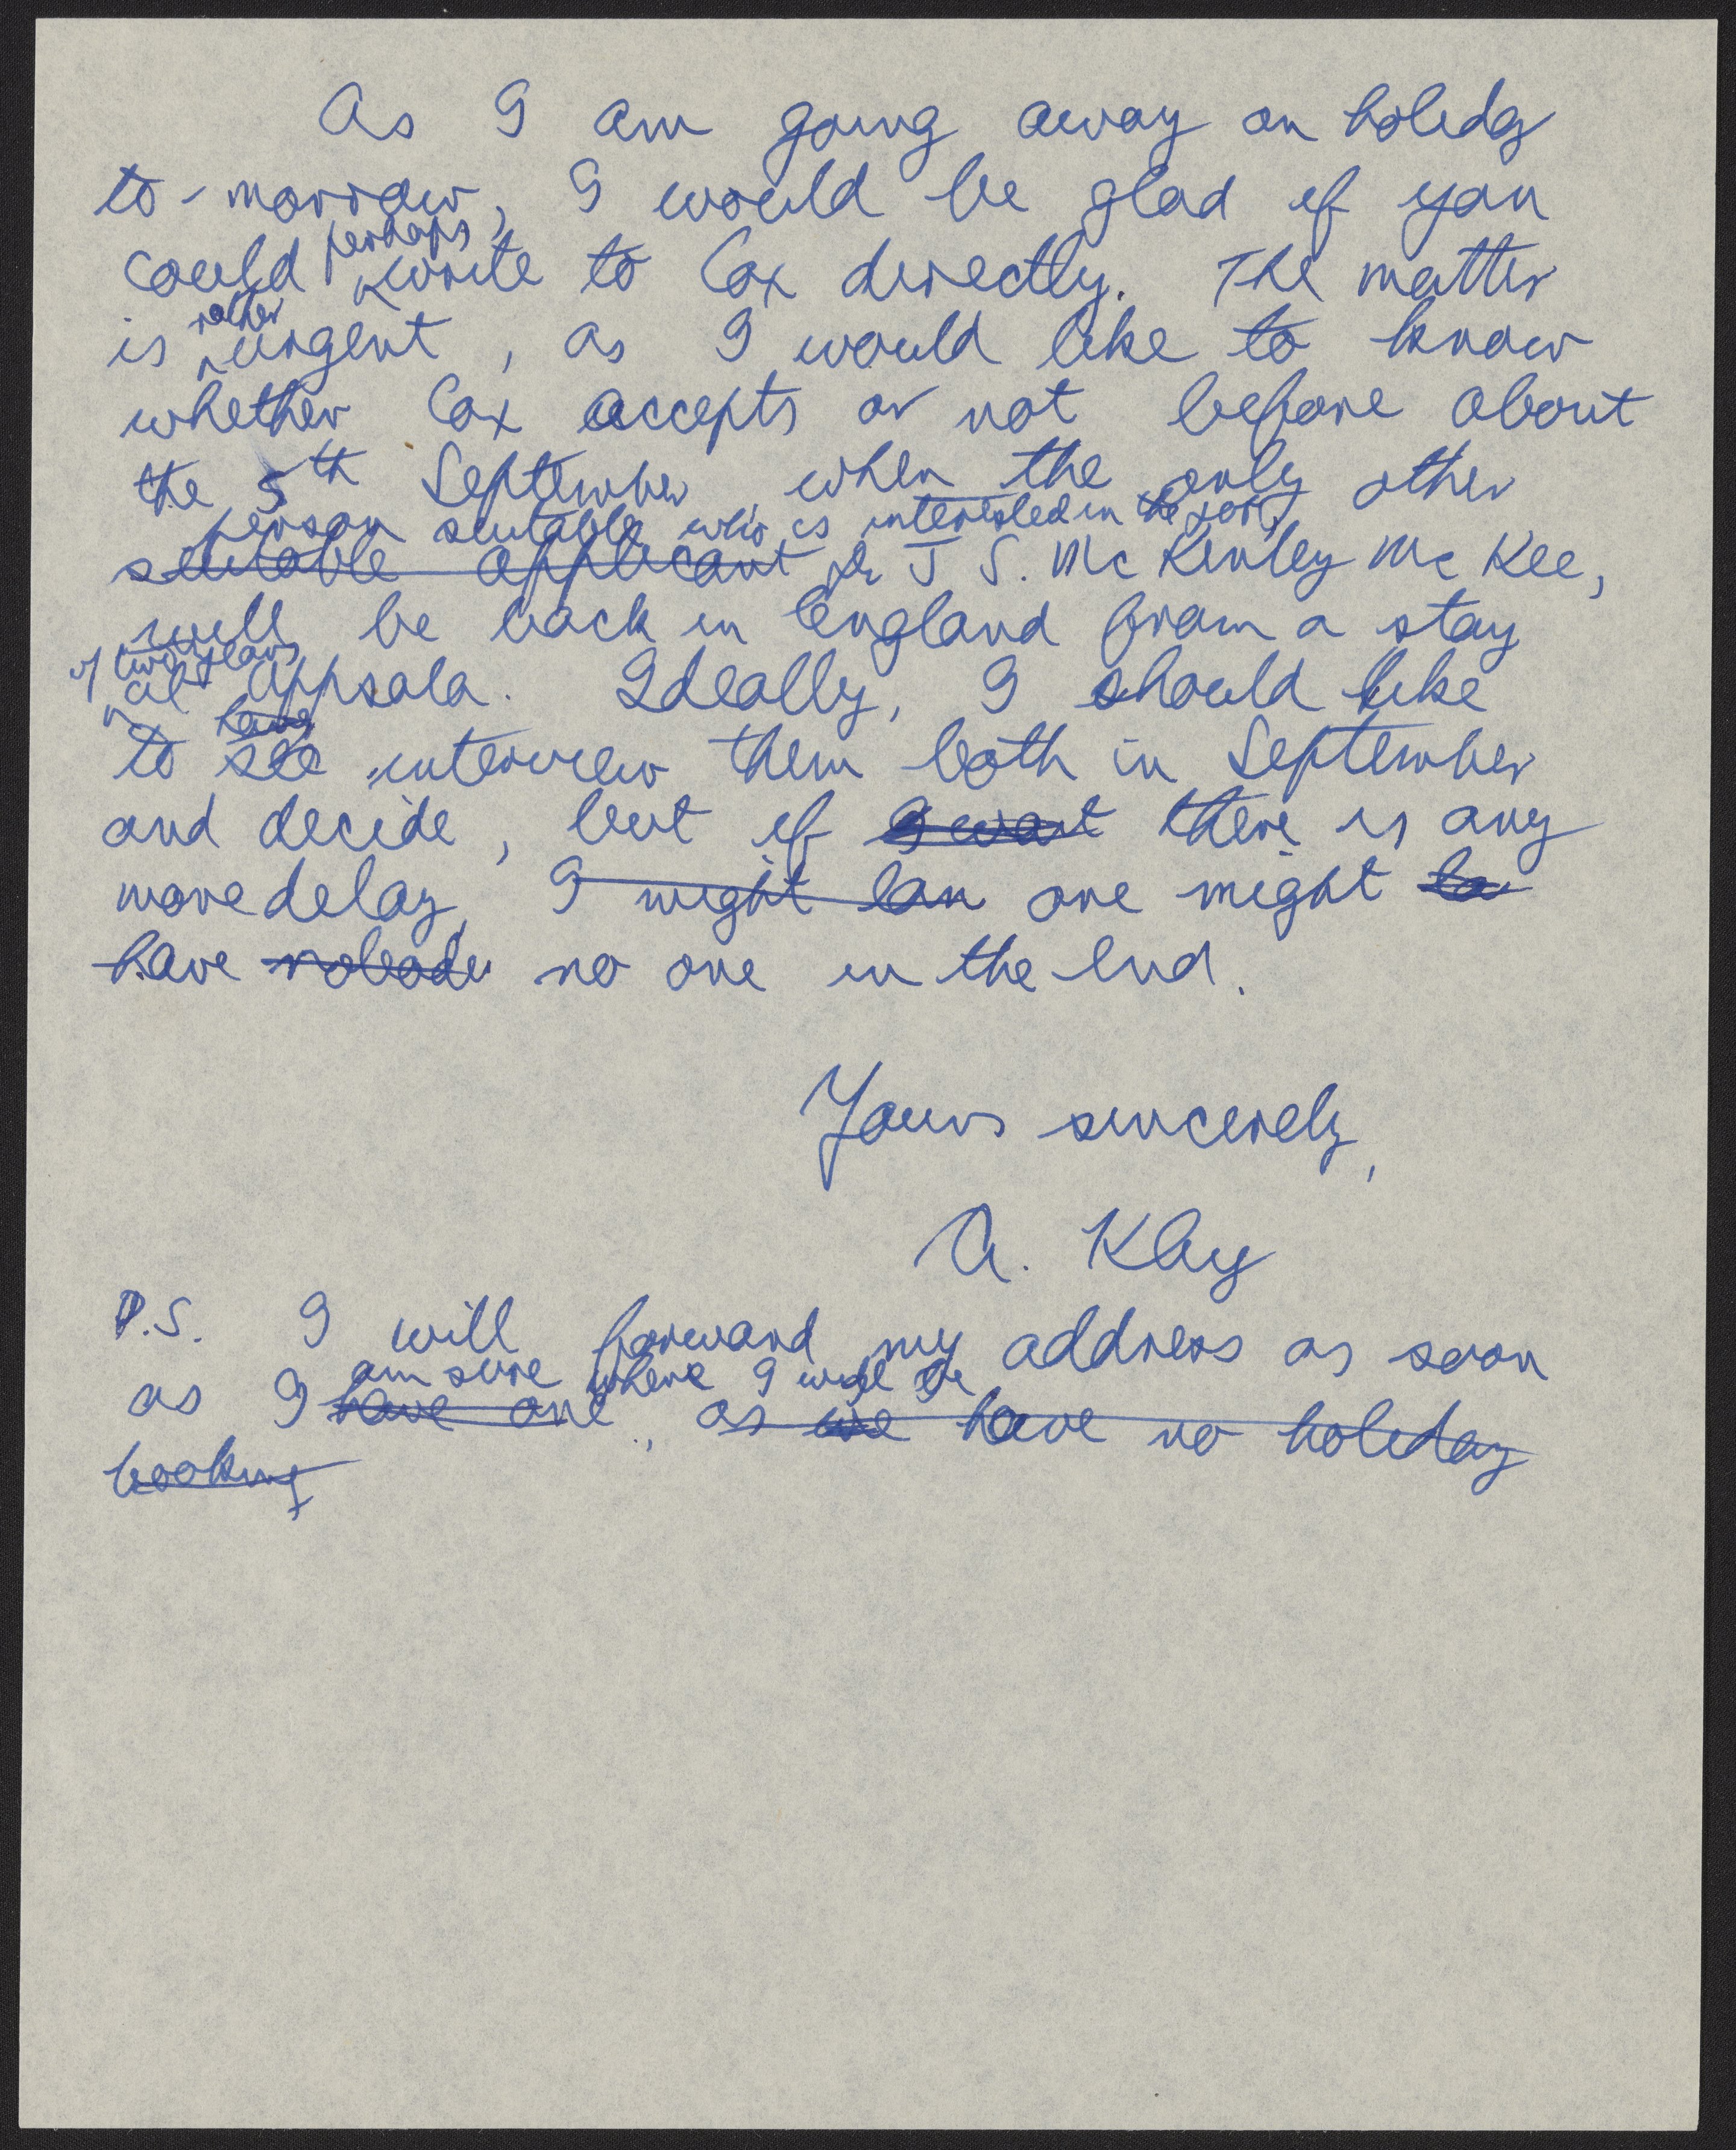 As I am going away on holiday
to-morrow, I would be glad if you
perhaps
could write to Cox directly. The matter
rather
is urgent, as I would like to know
whether Cox accepts or not before about
the 5th September, when the only other
person suitable who is interested in the job,
suitable applicant Dr J S. McKinley McKee,
will be back in England from a stay
of two years
at Uppsala. Ideally, I should like
have
to see interview them both in September
and decide, but if I wait there is any
more delay, I might one might
have nobody no one in the end.
Yours sincerely,
A. Klug
P.S. I will forward my address as soon
am sure where I will be
as I have one, as we have no holiday
booking